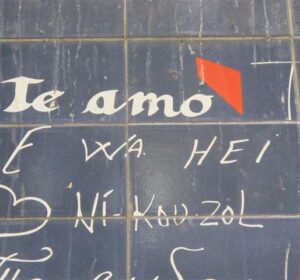 Te amo
E WA HEI
NI-KOU-ZOL